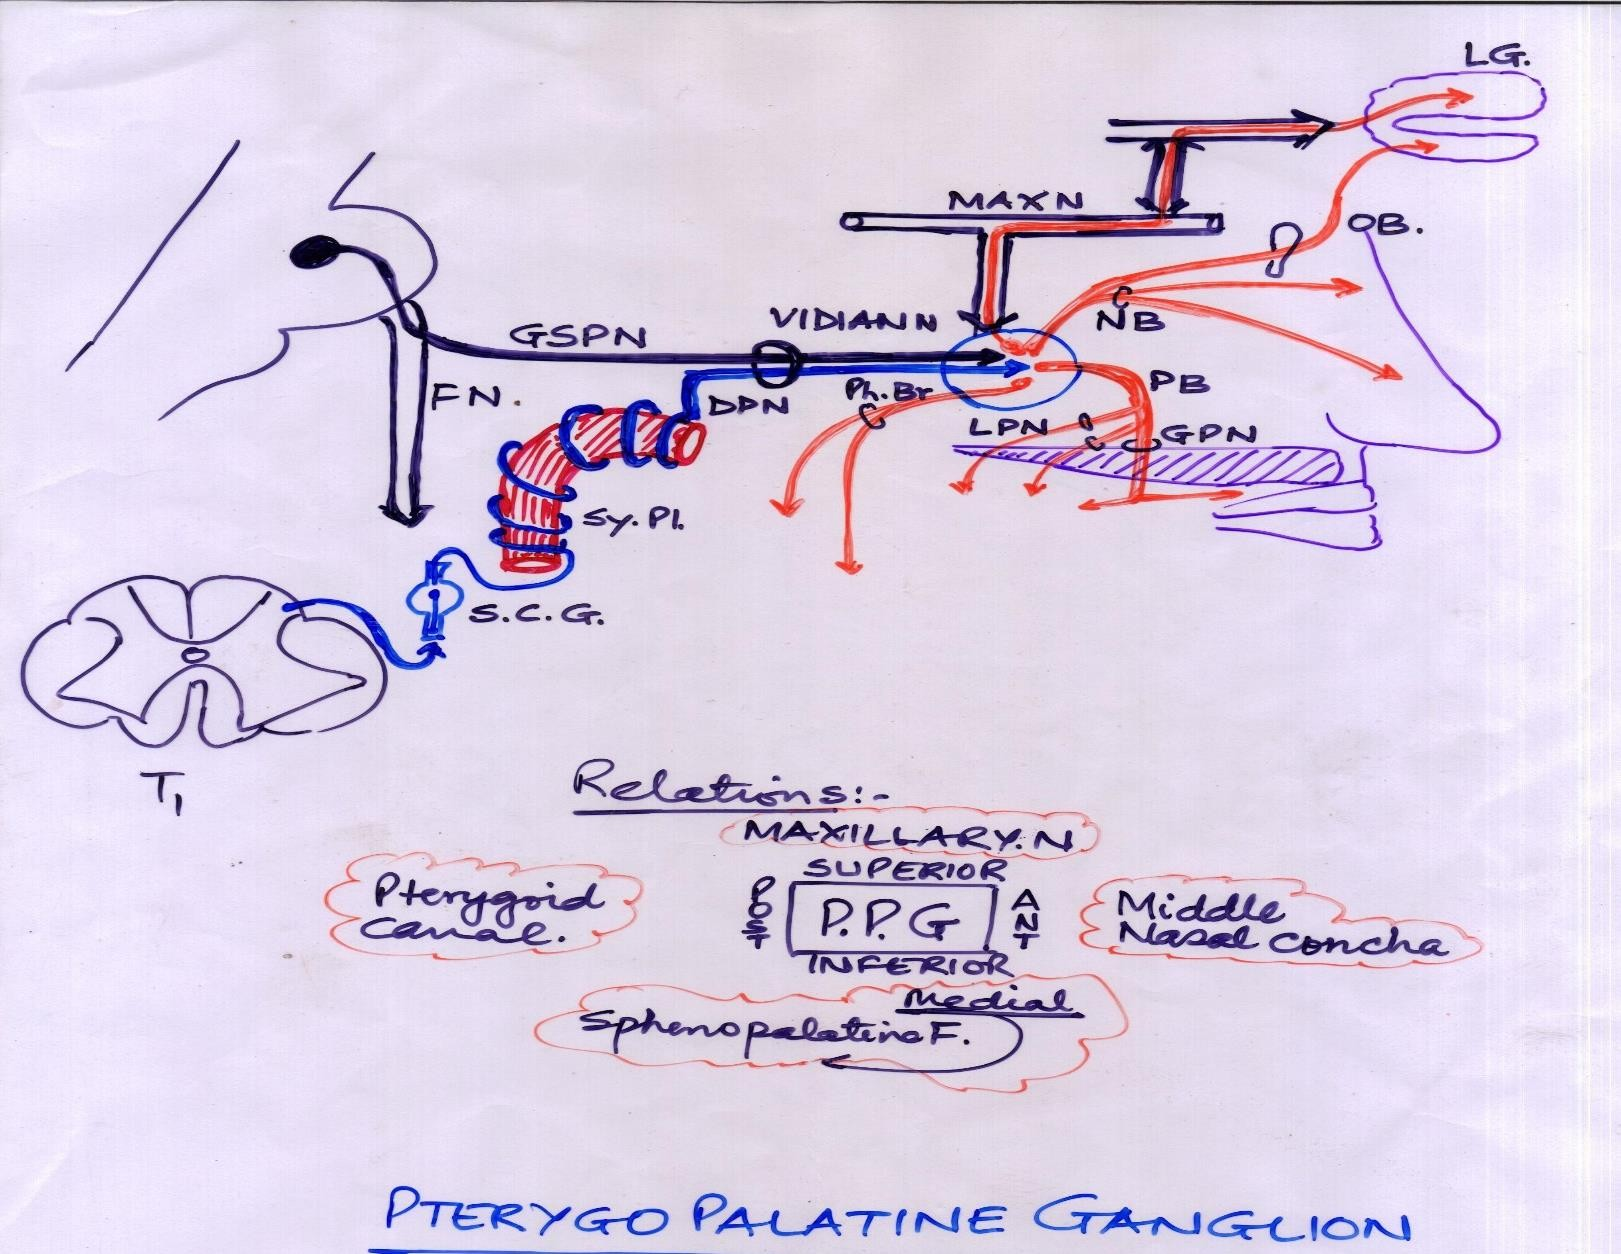 LG.
MAXN
OB.
VIDIANN
NB
GSPN
FN.
DPN
Ph.Br
PB
LPN
GPN
Sy.Pl.
S.C.G.
T1
Relations:-
MAXILLARY.N
SUPERIOR
Pterygoid
Canal.
POST
P.P.G
ANT
Middle
Nasal concha
INFERIOR
Medial
Sphenopalatine F.
PTERYGO PALATINE GANGLION